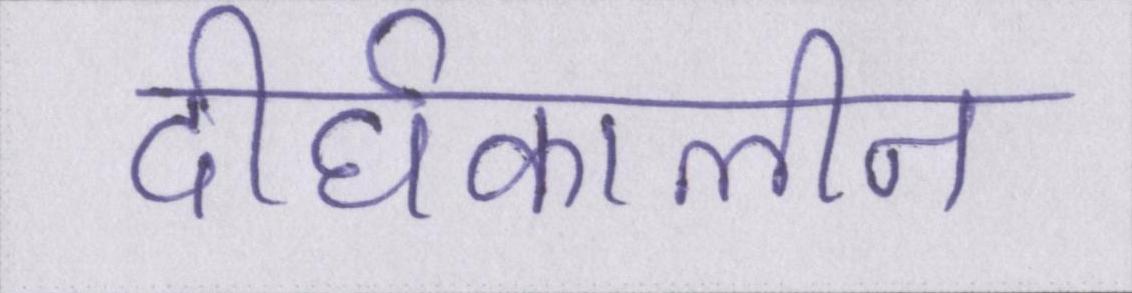 दीर्घकालीन